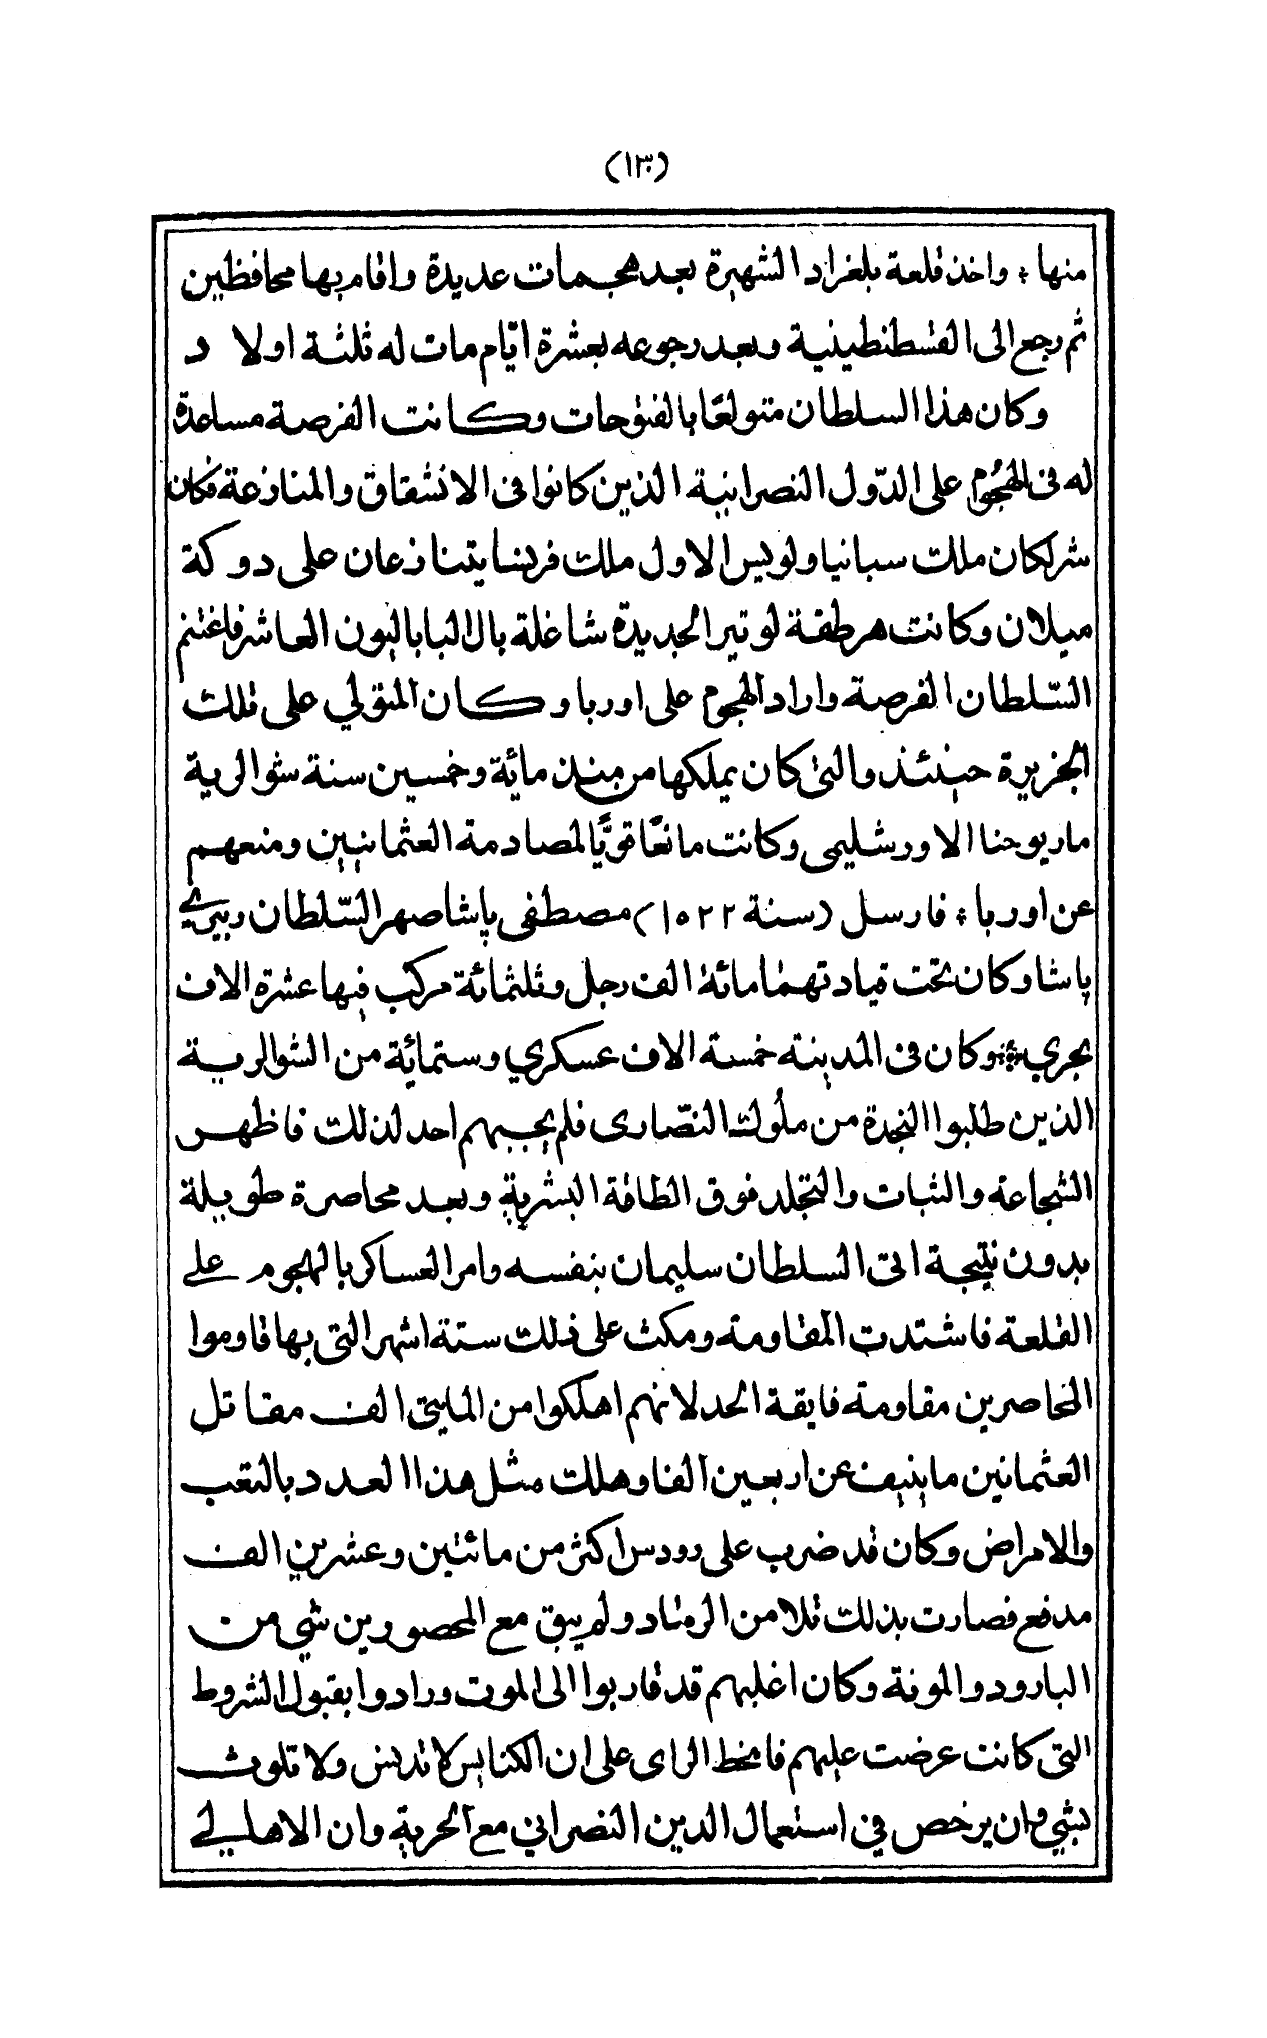 (١٣٠)
منها * واخذ قلعة بلغراد الشهيرة بعد هجمات عديدة واقام بها محافظين
ثم رجع الى القسطنطينية وبعد رجوعه بعشرة ايّام مات له ثلثة اولا د
وكان هذا السلطان متولعًا بالفتوحات وكانت الفرصة مساعدة
له فى الهجُوم على الدّول النصرانية الذين كانوا فى الانشقاق والمنازعة فكان
شرلكان ملك سبانيا ولويس الاول ملك فرنسا يتنازعان على دوكة
ميلان وكانت هرطقة لوتير الجديدة شاغلة بال البابا اليون العاشر فاغتنم
السّلطان الفرصة واراد الهجوم على اوربا وكان المتولي على تلك
الجزيرة حينئذ والتى كان يملكها من منذ مائة وخمسين سنة شوالرية
ماريوحنا الاورشليمى وكانت مانعًا قويًّا لمصادمة العثمانيين ومنعهم
عن اوربا * فارسل (سنة ١٥٢٢) مصطفى پاشا صهر السّلطان وبيري
پاشا وكان تحت قيادتهما مائة الف رجل وثلثمائة مركب فيها عشرة الاف
بحري * وكان فى المدينة خمسة الاف عسكري وستمائة من الشوالرية
الذين طلبوا النجدة من ملُوك النصّارى فلم يجبهم احد لذلك فاظهر
الشجاعة والثبات والتجلد فوق الطاقة البشرية وبعد محاصرة طويلة
بدون نتيجة اتى السلطان سليمان بنفسه وامر العساكر بالهجوم على
القلعة فاشتدت المقاومة ومكث على ذلك ستة اشهر التى بها قاوموا
المحاصرين مقاومة فايقة الحد لانهم اهلكوا من المايتى الف مقاتل
العثمانين ما ينيف عن اربعين الفا وهلك مثل هذا العدد بالتعب
والامراض وكان قد ضرب على رودس اكثر من مائتين وعشرين الف
مدفع فصارت بذلك تلا من الرماد ولم يبق مع المحصورين شي من
البارود والمونة وكان اغلبهم قد قاربوا الى الموت ورادوا بقبول الشروط
التى كانت عرضت عليهم فانحط الراى على ان الكنايس لا تدنس ولا تلوث
بشي وان يرخص في استعمال الدين النصراني مع الحرية وان الاهالي